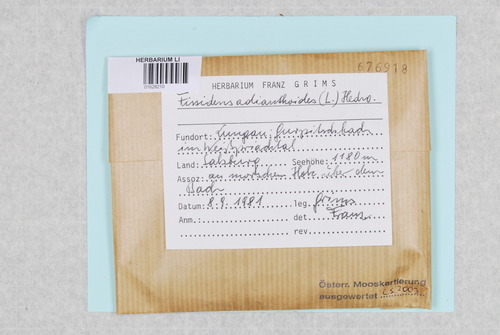 HERBARIUM LI
01628210
676918
HERBARIUM FRANZ GRIMS
Fissidens adianthoides (L.) Hedw.
Fundort: Lungau,
im
Land: Salzburg Seehöhe: 1180 m
Assoz: an morschem Holz über dem
Bach
Datum: 8.9.1981 leg. Grims
Anm.: det Franz
rev
Österr. Mooskartierung
ausgewertet